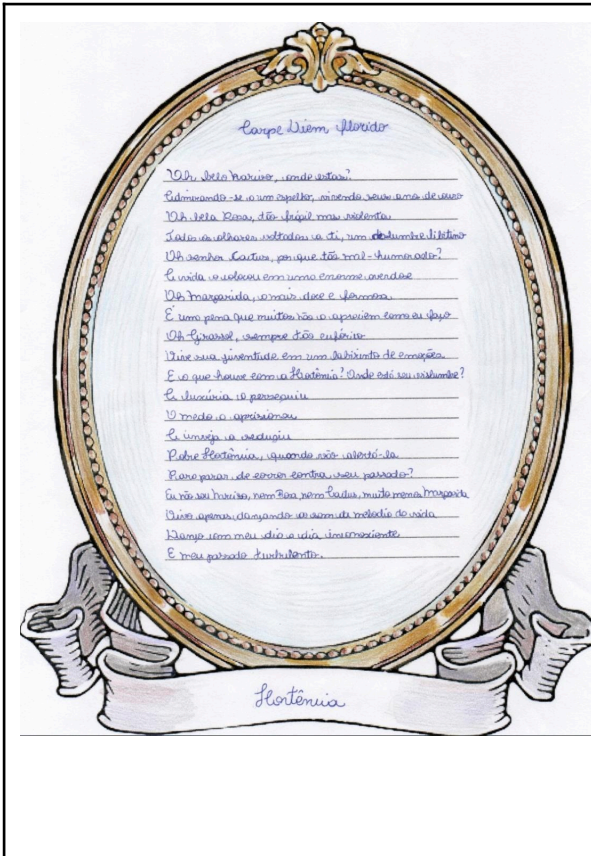 Carpe Diem florido
Oh belo Narciso, onde estas?
Admirando-se a um espelho, vivendo seus anos de ouro
Oh bela Rosa, tão frágil mas violenta
Todos os olhares voltados a ti, um deslumbre libitino
Oh senhor Cactus, por que tão mal-humorado?
A vida o colocou em uma enorme overdose
Oh Margarida, a mais doce e formosa
É uma pena que muitos não a apreciem como eu faço
Oh Girassol, sempre tão eufórico
Vive sua juventude em um labirinto de emoções
E o que houve com a Hortência? Onde está seu vislumbre?
A luxúria a perseguiu
O medo a aprisionou
A inveja a seduziu
Pobre Hortência, quando irão alertá-la
Para parar de correr contra seu passado?
Eu não sou Narciso, nem Rosa, nem Cactus, muito menos Margarida
Vivo apenas dançando ao som da melodia da vida
Danço com meu dia a dia inconsciente
E meu passado turbulento.
Hortência